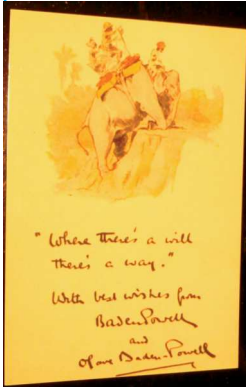 "Where there's a will
there's a way."
With best wishes from
Baden Powell
and
Olave Baden-Powell